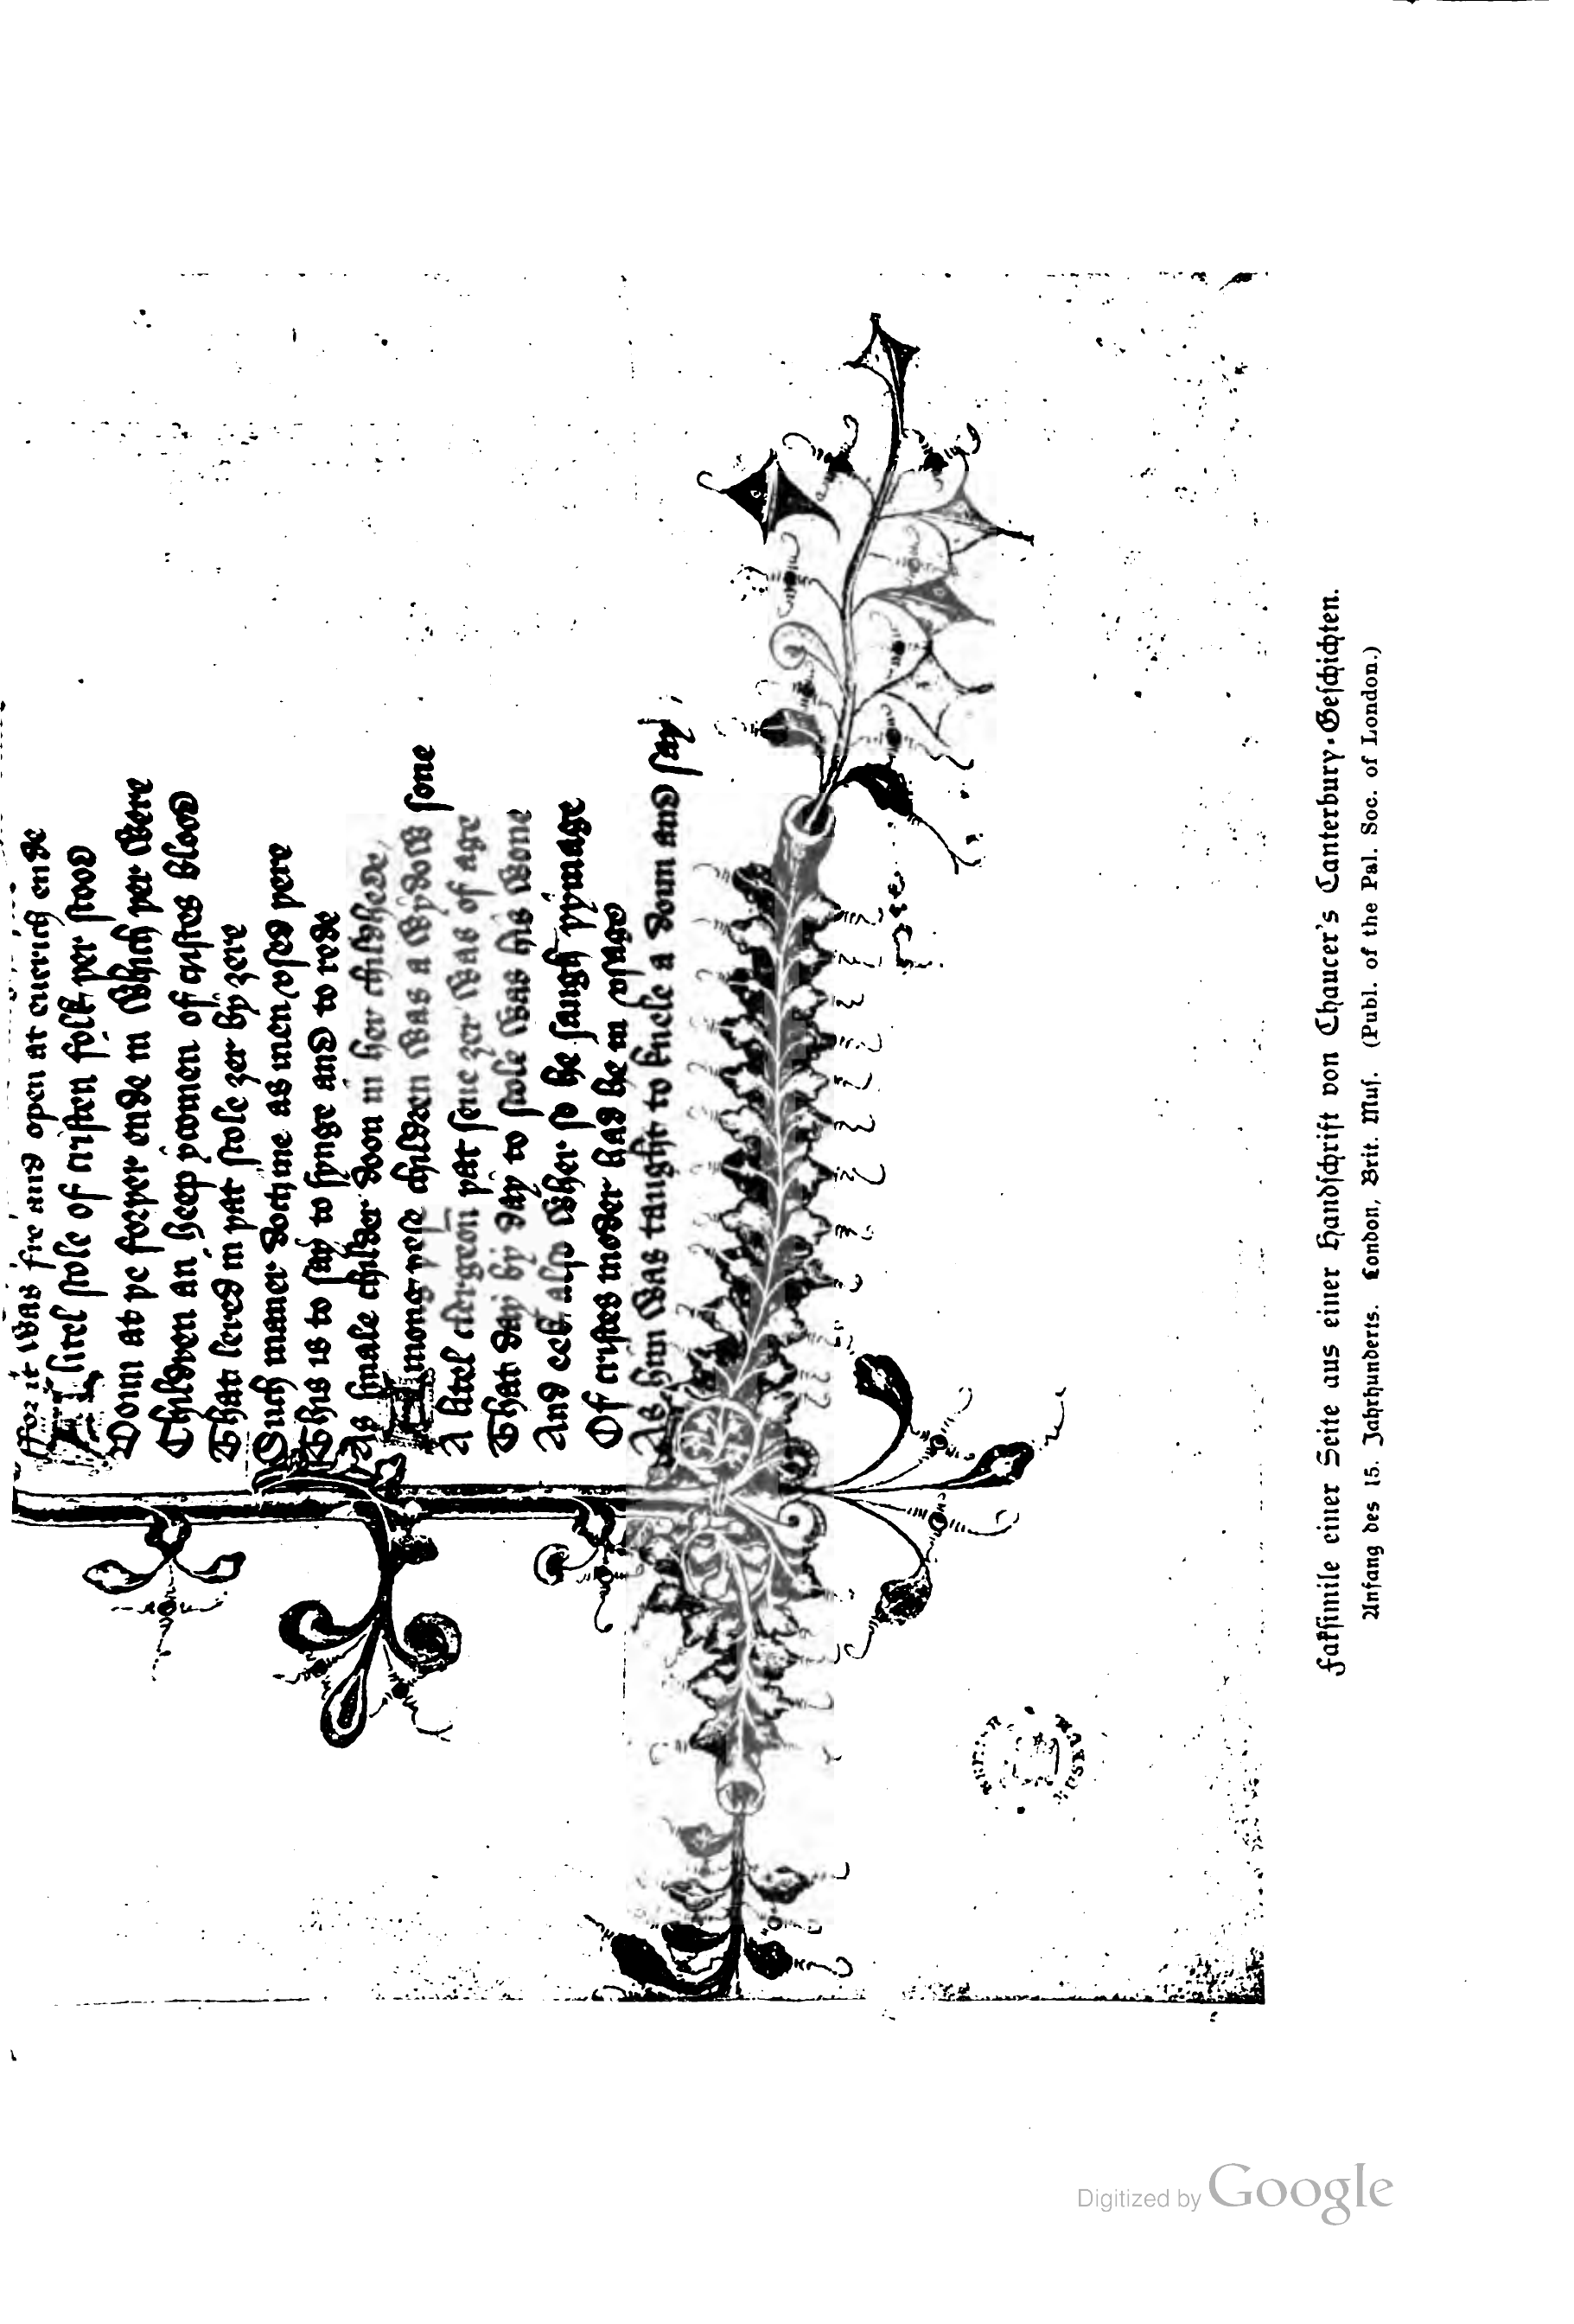 ffor it was fre and open at euerich ende
A litel skole of cristen folk þer stood
Doun at þe forþer ende in which þer were
Children an heep ycomen of cristes blood
That lered in þat skole ȝer by ȝere
Such maner doctrine as men vsed þere
This is to say to synge and to rede
As smale childer doon in her childhede
Among þese children was a wydow sone
A litel clergeon þat seue ȝer was of age
That day by day to skole was his wone
And eek also wher so he saugh þymage
Of cristes moder had he in vsage
As him was taught to knele a doun and say
Faksimile einer Seite aus einer Handschrift von Chaucer's Canterbury-Geschichten.
Anfang des 15. Jahrhunderts. London, Brit. Mus. (Publ. of the Pal. Soc. of London.)
MUSEUM
Digitized by Google